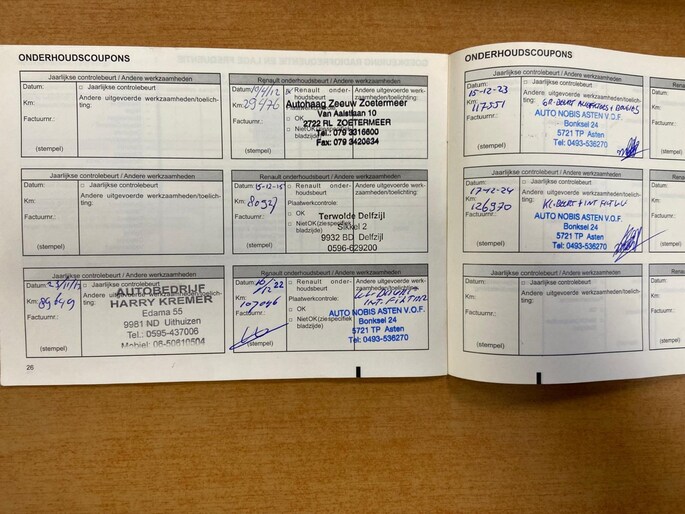 ONDERHOUDSCOUPONS
Jaarlijkse controlebeurt / Andere werkzaamheden
Datum:
□ Jaarlijkse controlebeurt
Km:
Andere uitgevoerde werkzaamheden/toelichting:
Factuurnr.:
(stempel)
Renault onderhoudsbeurt / Andere werkzaamheden
Datum: 10/4/12
Renault onderhoudsbeurt
Andere uitgevoerde werk-
Km: 29476
□ OK
Factuurnr.:
□ NietOK (zie specifiek bladzijde)
(stempel)
Autohaag Zeeuw Zoetermeer
Van Aalstlaan 10
2722 RL ZOETERMEER
Tel.: 079 3316600
Fax: 079 3420634
Jaarlijkse controlebeurt / Andere werkzaamheden
Datum:
□ Jaarlijkse controlebeurt
Km:
Andere uitgevoerde werkzaamheden/toelichting:
Factuurnr.:
(stempel)
Renault onderhoudsbeurt / Andere werkzaamheden
Datum: 15-12-15
□ Renault onderhoudsbeurt
Andere uitgevoerde werkzaamheden/toelichting:
Km:
Plaatwerkcontrole:
□ OK
Factuurnr.:
□ NietOK (zie specifiek bladzijde)
(stempel)
Terwolde Delfzijl
Sikkel 2
9932 BD Delfzijl
0596-629200
Jaarlijkse controlebeurt / Andere werkzaamheden
Datum:
□ Jaarlijkse controlebeurt
Km: 89649
Andere uitgevoerde werkzaamheden/toelichting:
Factuurnr.:
(stempel)
AUTOBEDRIJF
HARRY KREMER
Edama 55
9981 ND Uithuizen
Tel.: 0595-437006
Mobiel: 06-50610504
Renault onderhoudsbeurt / Andere werkzaamheden
Datum:
□ Renault onderhoudsbeurt
Andere uitgevoerde werkzaamheden/toelichting:
Km: 107046
Plaatwerkcontrole:
□ OK
Factuurnr.:
□ NietOK (zie specifiek bladzijde)
(stempel)
AUTO NOBIS ASTEN V.O.F.
Bonksel 24
5721 TP Asten
Tel: 0493-536270
26
ONDERHOUDSCOUPONS
Jaarlijkse controlebeurt / Andere werkzaamheden
Datum: 15-12-23
□ Jaarlijkse controlebeurt
Km: 117551
Andere uitgevoerde werkzaamheden/toelichting:
Factuurnr.:
(stempel)
AUTO NOBIS ASTEN V.O.F.
Bonksel 24
5721 TP Asten
Tel: 0493-536270
Jaarlijkse controlebeurt / Andere werkzaamheden
Datum: 17-12-24
□ Jaarlijkse controlebeurt
Km: 126970
Andere uitgevoerde werkzaamheden/toelichting:
Factuurnr.:
(stempel)
AUTO NOBIS ASTEN V.O.F.
Bonksel 24
5721 TP Asten
Tel: 0493-536270
Jaarlijkse controlebeurt / Andere werkzaamheden
Datum:
□ Jaarlijkse controlebeurt
Km:
Andere uitgevoerde werkzaamheden/toelichting:
Factuurnr.:
(stempel)